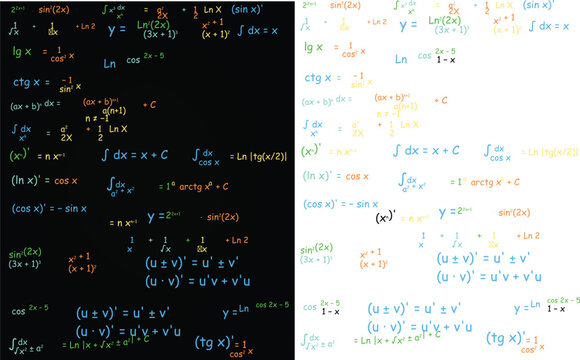 2^{2x+1} · sin²(2x) ∫x² dx/x³ = a²/2X + 1/2 Ln X (sin x)'
1/√x + 1/ + Ln 2 y = Ln²(2x)/(3x + 1)³ x² + 1/(x + 1)² ∫ dx = x
lg x = 1/cos² x Ln cos 2x - 5
ctg x = -1/sin² x
(ax + b)ⁿ dx = (ax + b)ⁿ⁺¹/a(n+1) + C
n ≠ -1
∫ dx/x³ = a²/2X + 1/2 Ln X
(xⁿ)' = n xⁿ⁻¹ ∫ dx = x + C ∫ dx/cos x = Ln |tg(x/2)|
(ln x)' = cos x ∫ dx/a² + x² = 1ᵃ arctg xᵃ + C
(cos x)' = - sin x = n xⁿ⁻¹ y = 2^{2x+1} · sin²(2x)
1/x + 1/√x + 1/ + Ln 2
sin²(2x)/(3x + 1)³ x² + 1/(x + 1)² (u ± v)' = u' ± v'
(u · v)' = u'v + v'u
cos 2x - 5 (u ± v)' = u' ± v' y = Ln cos 2x - 5/1 - x
(u · v)' = u'v + v'u
∫ dx/√x² ± a² = Ln |x + √x² ± a²| + C (tg x)' = 1/cos² x
2^{2x+1} · sin²(2x) ∫x² dx/x³ = a²/2X + 1/2 Ln X (sin x)'
1/√x + 1/ + Ln 2 y = Ln²(2x)/(3x + 1)³ x² + 1/(x + 1)² ∫ dx = x
lg x = 1/cos² x Ln cos 2x - 5/1 - x
ctg x = -1/sin² x
(ax + b)ⁿ dx = (ax + b)ⁿ⁺¹/a(n+1) + C
n ≠ -1
∫ dx/x³ = a²/2X + 1/2 Ln X
(xⁿ)' = n xⁿ⁻¹ ∫ dx = x + C ∫ dx/cos x = Ln |tg(x/2)|
(ln x)' = cos x ∫ dx/a² + x² = 1ᵃ arctg xᵃ + C
(cos x)' = - sin x (xⁿ)' = n xⁿ⁻¹ y = 2^{2x+1} · sin²(2x)
1/x + 1/√x + 1/ + Ln 2
sin²(2x)/(3x + 1)³ x² + 1/(x + 1)² (u ± v)' = u' ± v'
(u · v)' = u'v + v'u
cos 2x - 5/1 - x (u ± v)' = u' ± v' y = Ln cos 2x - 5/1 - x
(u · v)' = u'v + v'u
∫ dx/√x² ± a² = Ln |x + √x² ± a²| + C (tg x)' = 1/cos² x